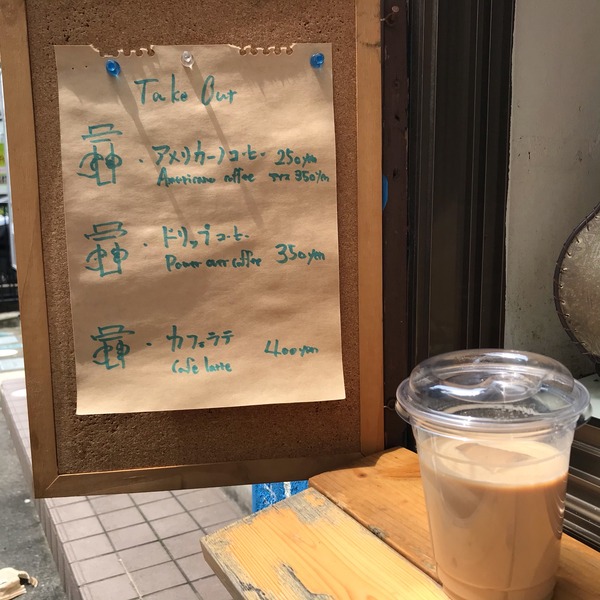 Take Out
・アメリカーノコーヒー 250yen
Americano coffee アイス 350yen
・ドリップコーヒー
Power over coffee 350yen
・カフェラテ 400yen
Cafe latte